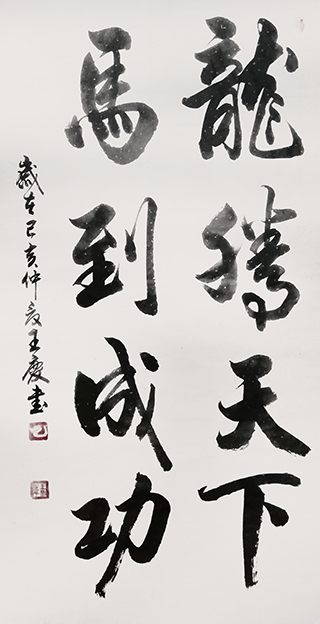 龍騰天下
馬到成功
歲在己亥仲夏王慶書